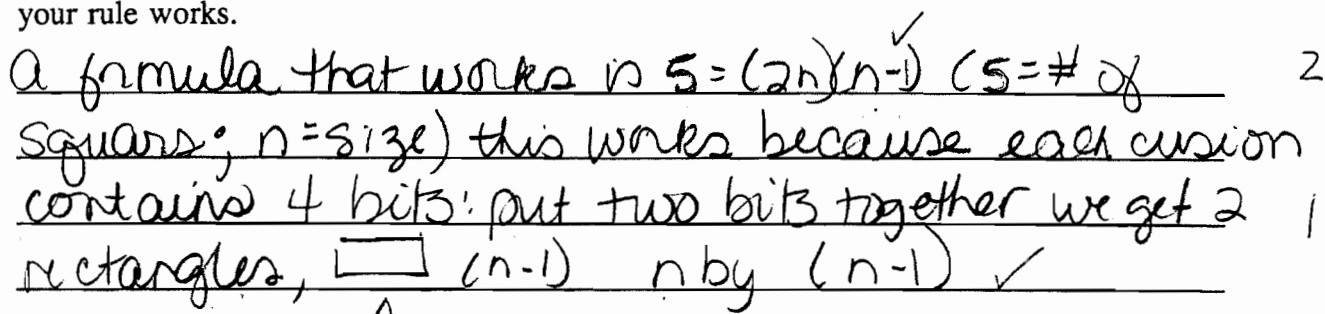 your rule works.
a formula that works is S = (2n)(n-1) (S = # of 2
squars; n = size) this works because each cusion
contains 4 bits: put two bits together we get 2 1
rectangles, (n-1) n by (n-1) ✓
n